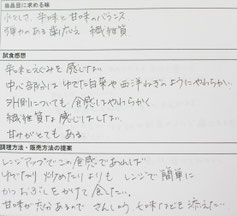 当品目に求める味
小ささ、辛味と甘味のバランス
弾力のある歯応え 繊維質
試食感想
辛味とえぐみを感じない
中心部分は ゆでた白菜や西洋ねぎのようにやわらかい
外側についても 食感はやわらかく
繊維質な感じはしない
甘みがとてもある
調理方法・販売方法の提案
レンジアップでこの食感であれば
ゆでたり 炒めたりよりも レンジで簡単に
かつおぶしをかけて食したい。
甘味が充分あるので さんしょう 七味なども 添えたい